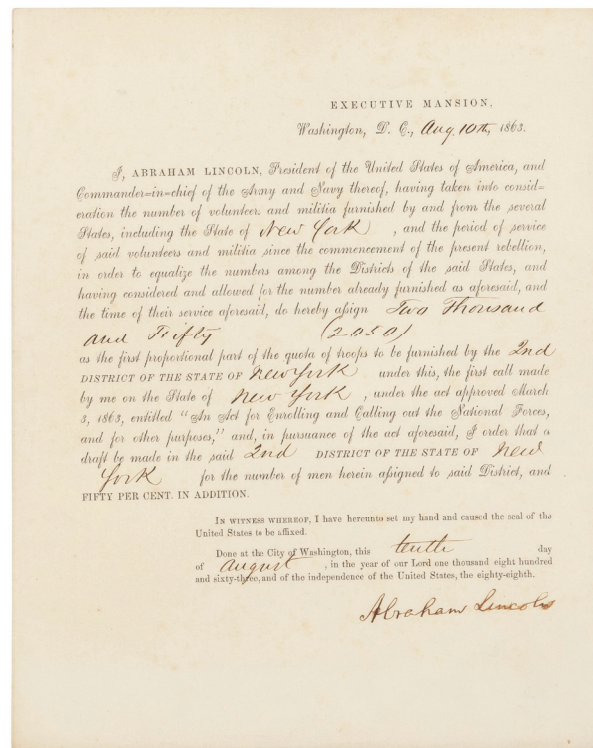 EXECUTIVE MANSION,
Washington, D. C., Aug. 10th, 1863.
I, ABRAHAM LINCOLN, President of the United States of America, and
Commander=in=chief of the Army and Navy thereof, having taken into consid=
eration the number of volunteer. and militia furnished by and from the several
States, including the State of New York , and the period of service
of said volunteers and militia since the commencement of the present rebellion,
in order to equalize the numbers among the Districts of the said States, and
having considered and allowed for the number already furnished as aforesaid, and
the time of their service aforesaid, do hereby aſsign Two Thousand
and Fifty (2050)
as the first proportional part of the quota of troops to be furnished by the 2nd
DISTRICT OF THE STATE OF New York under this, the first call made
by me on the State of New York , under the act approved March
3, 1863, entitled "An Act for Enrolling and Calling out the National Forces,
and for other purposes," and, in pursuance of the act aforesaid, I order that a
draft be made in the said 2nd DISTRICT OF THE STATE OF New
York for the number of men herein aſsigned to said District, and
FIFTY PER CENT. IN ADDITION.
IN WITNESS WHEREOF, I have hereunto set my hand and caused the seal of the
United States to be affixed.
Done at the City of Washington, this tenth day
of August , in the year of our Lord one thousand eight hundred
and sixty-three, and of the independence of the United States, the eighty-eighth.
Abraham Lincoln